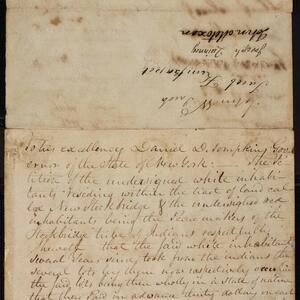 John W
Jacob
Jacob
Joseph Quinney
John Metoxen
To his excellency Daniel D. Tompkins Gov
ernor of the State of New York: The Pe
tition of the undersigned white inhabi
tants residing within the tract of land cal
led New Stockbridge & the undersigned red
inhabitants being the Peace makers of the
Stockbridge tribe of Indians respectfully
Sheweth that the said white inhabitants
several years since took from the indians the
several lots by them now respectively occupied
the said lots being then wholly in a state of nature
that they paid in advance